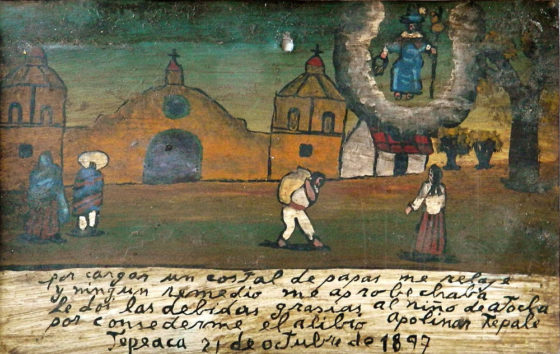 por cargar un costal de papas me relaje
y ningun remedio me aprobechaba
Le doy las debidas grasias al niño de atocha
por consederme el alibio apolinar Tepale
Tepeaca 21 de octubre de 1897